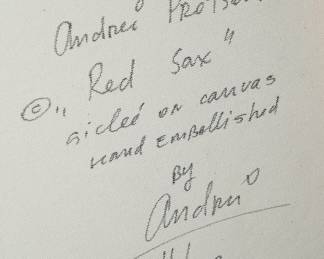 Andrei PROTSOUK
© "Red Sax"
giclée on canvas
Hand Embellished
By
Andrei